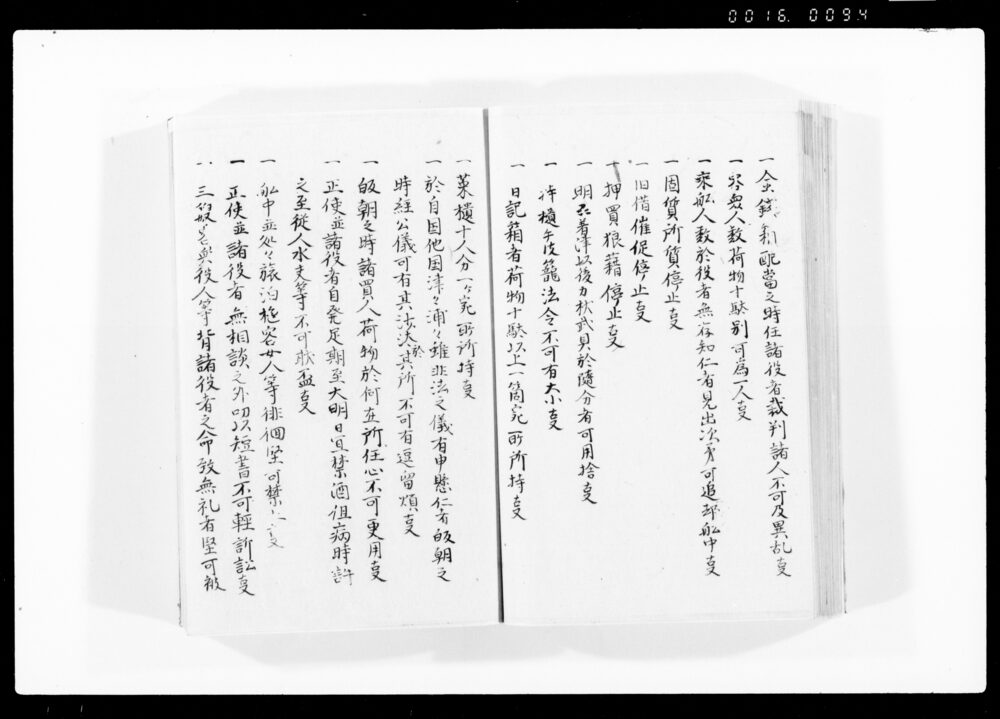 0016. 0094
一 金錢 配當之時任諸役者裁判諸人不可及異乱叓
一 客衆人数荷物十駄別可為一人叓
一 乘舩人数於役者無存知仁者見出次第可追却舩中叓
一 固質所質停止叓
一 旧借催促停止叓
一 押買狼藉停止叓
一 明 着津以後刀杖武具於随分者可用捨叓
一 持櫃 皮籠法令不可有大小叓
一 日記箱者荷物十駄以上一箇宛可所持叓
一 菜櫃十人分一ヶ宛可所持叓
一 於自国他国津々浦々雖非法之儀有申懸仁者皈朝之
時経公儀可有其沙汰於其所不可有逗留煩叓
一 皈朝之時諸買人荷物於何在所任心不可更用叓
一 正使並諸役者自発足期至大明日宜禁酒但病時許
之至従人水夫等不可 盃叓
一 舩中並処々旅泊 客女人等徘徊堅可禁之叓
一 正使並諸役者無相談之外叨以短書不可輕訴訟叓
一 三 與役人等背諸役者之命致無礼者堅可被